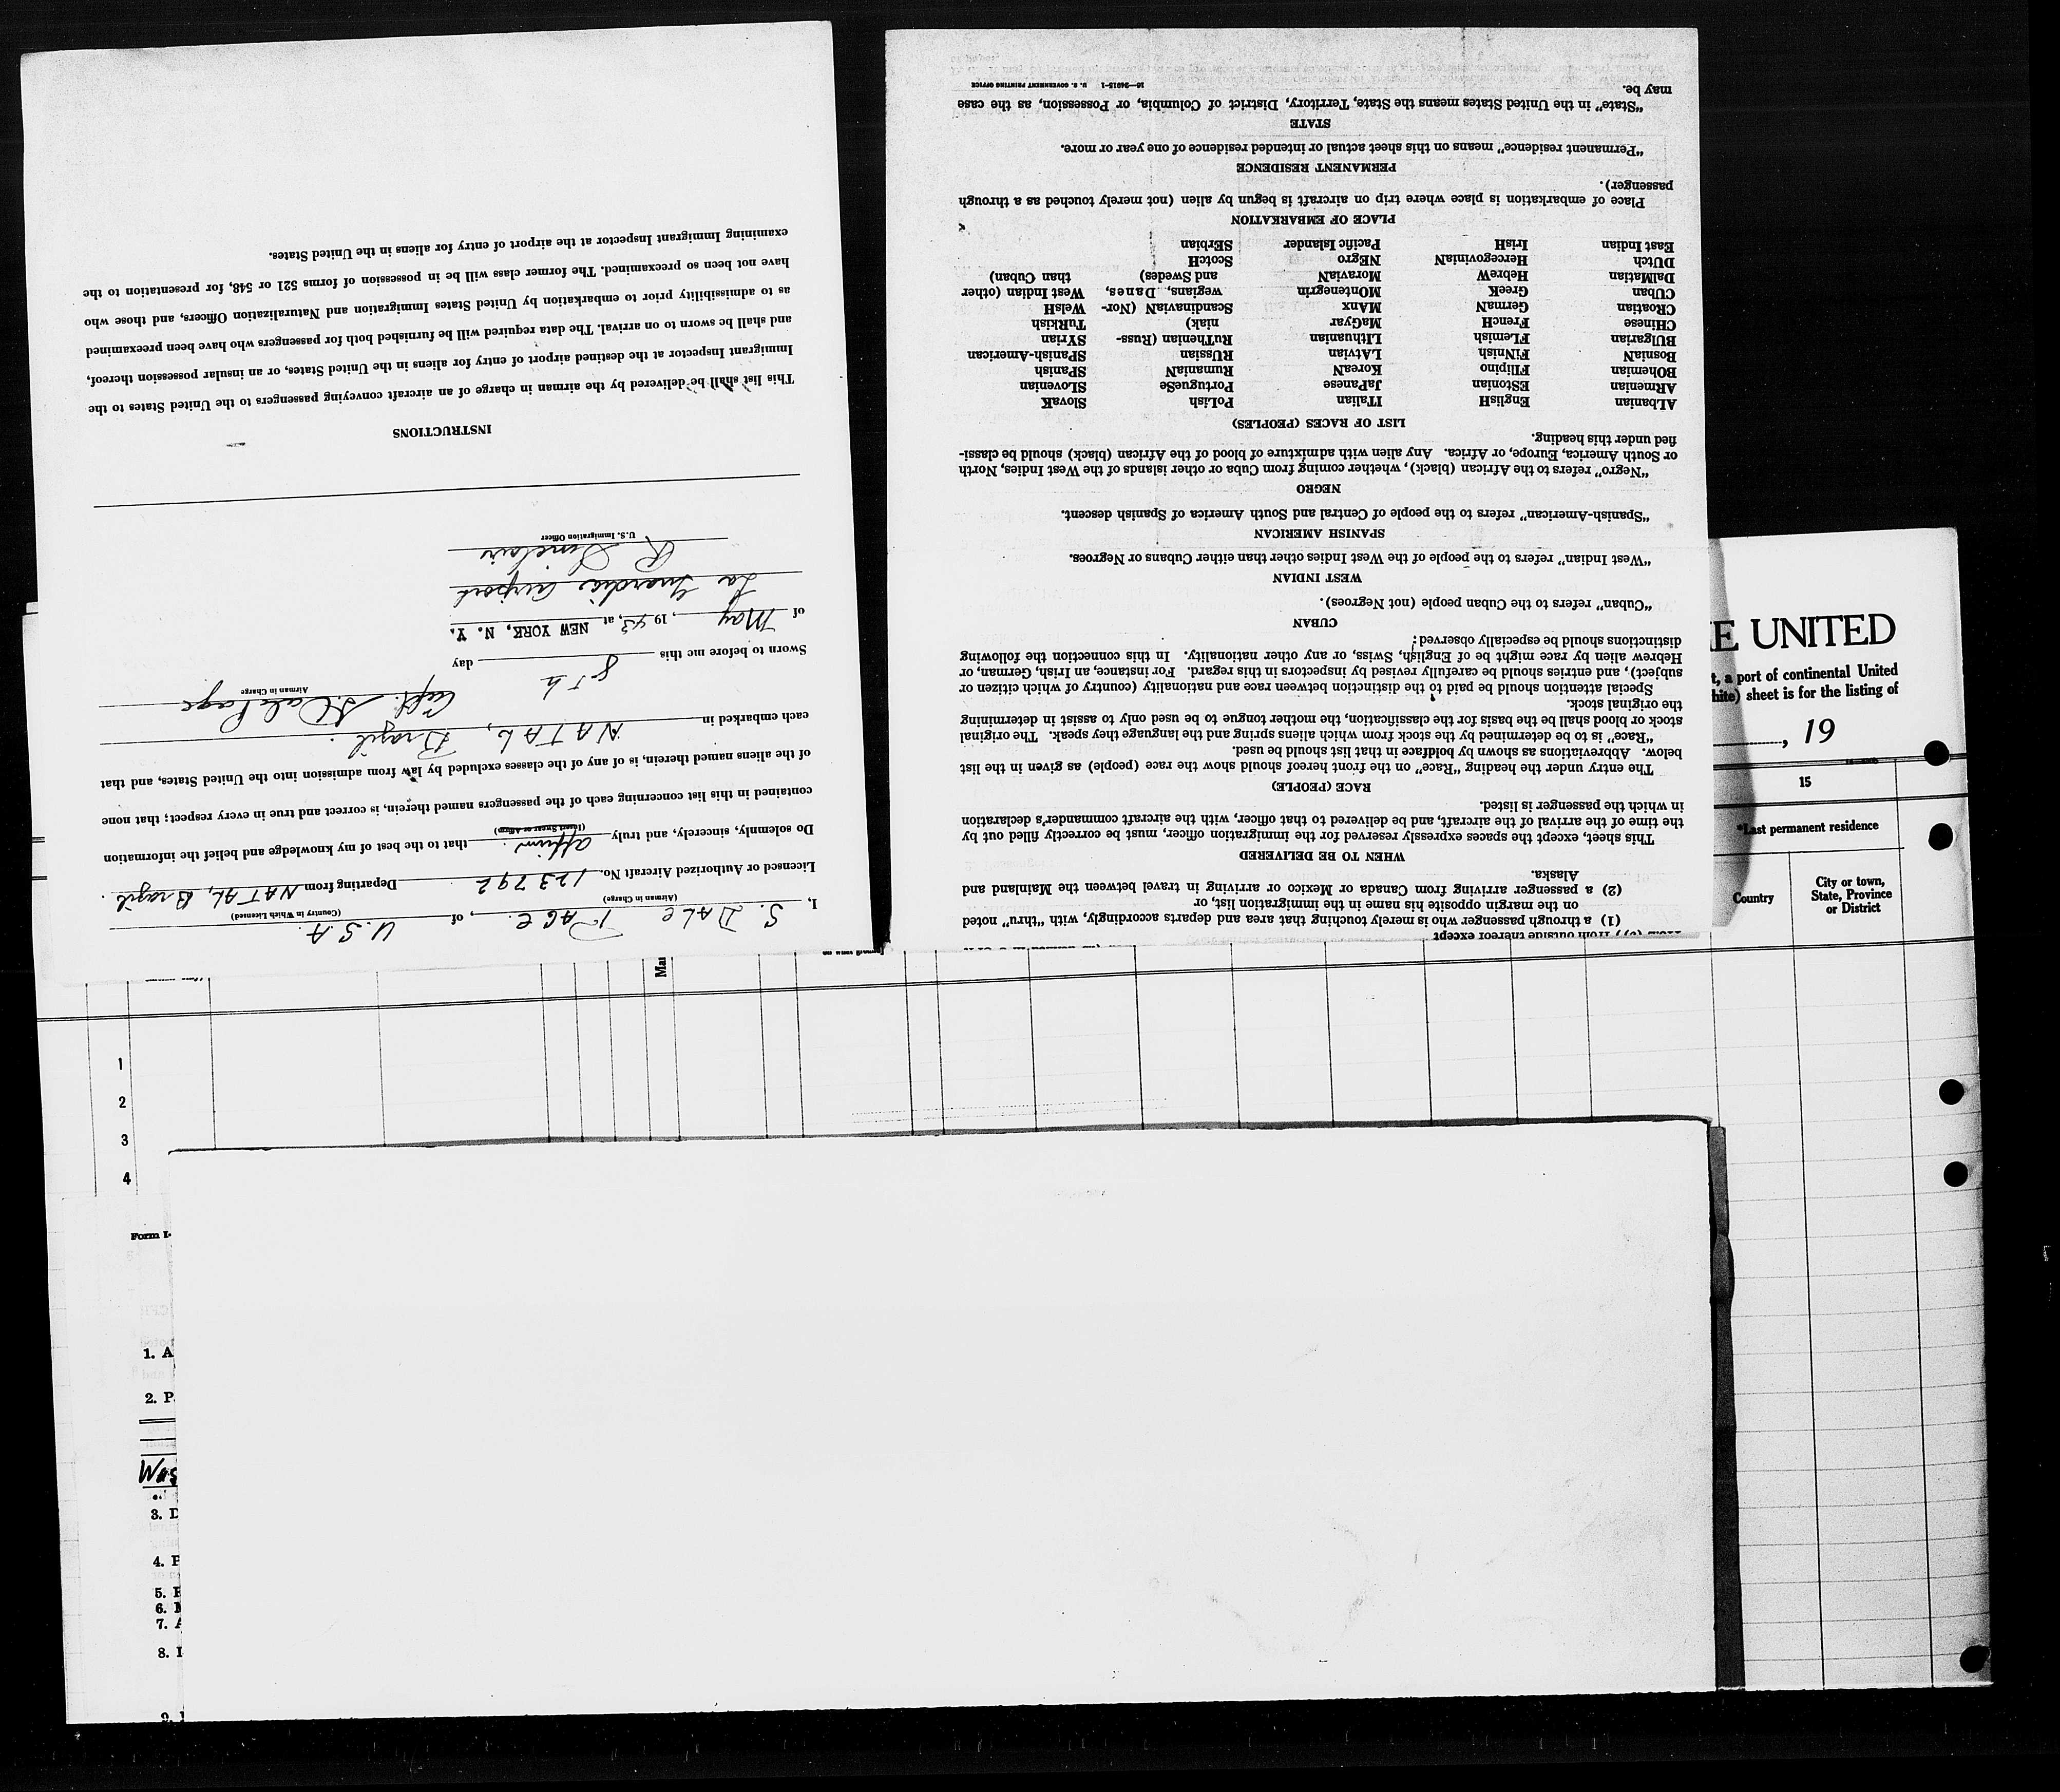 I, S. DALE PAGE, of U.S.A.
(Airman in Charge) (Country in Which Licensed)
Licensed or Authorized Aircraft No. 123792 Departing from NATAL, Brazil.
Do solemnly, sincerely, and truly affirm that to the best of my knowledge and belief the information
(Insert Swear or Affirm)
contained in this list concerning each of the passengers named therein, is correct and true in every respect; that none
of the aliens named therein, is of any of the classes excluded by law from admission into the United States, and that
each embarked in NATAL, Brazil.
Capt. S. Dale Page
Airman in Charge
Sworn to before me this 8th day
of May, 1943, at NEW YORK, N. Y.
La Guardia Airport
R Sinclair
U.S. Immigration Officer
INSTRUCTIONS
This list shall be delivered by the airman in charge of an aircraft conveying passengers to the United States to the
Immigrant Inspector at the destined airport of entry for aliens in the United States, or an insular possession thereof,
and shall be sworn to on arrival. The data required will be furnished both for passengers who have been preexamined
as to admissibility prior to embarkation by United States Immigration and Naturalization Officers, and those who
have not been so preexamined. The former class will be in possession of forms 521 or 548, for presentation to the
examining Immigrant Inspector at the airport of entry for aliens in the United States.
from outside thereof except
(1) a through passenger who is merely touching that area and departs accordingly, with “thru” noted
on the margin opposite his name in the immigration list, or
(2) a passenger arriving from Canada or Mexico or arriving in travel between the Mainland and
Alaska.
WHEN TO BE DELIVERED
This sheet, except the spaces expressly reserved for the immigration officer, must be correctly filled out by
the time of the arrival of the aircraft, and be delivered to that officer, with the aircraft commander's declaration
in which the passenger is listed.
RACE (PEOPLE)
The entry under the heading “Race” on the front hereof should show the race (people) as given in the list
below. Abbreviations as shown by boldface in that list should be used.
“Race” is to be determined by the stock from which aliens spring and the language they speak. The original
stock or blood shall be the basis for the classification, the mother tongue to be used only to assist in determining
the original stock.
Special attention should be paid to the distinction between race and nationality (country of which citizen or
subject), and entries should be carefully revised by inspectors in this regard. For instance, an Irish, German, or
Hebrew alien by race might be of English, Swiss, or any other nationality. In this connection the following
distinctions should be especially observed:
CUBAN
“Cuban” refers to the Cuban people (not Negroes).
WEST INDIAN
“West Indian” refers to the people of the West Indies other than either Cubans or Negroes.
SPANISH AMERICAN
“Spanish-American” refers to the people of Central and South America of Spanish descent.
NEGRO
“Negro” refers to the African (black), whether coming from Cuba or other islands of the West Indies, North
or South America, Europe, or Africa. Any alien with admixture of blood of the African (black) should be classi-
fied under this heading.
LIST OF RACES (PEOPLES)
ALbanian EnglisH ITalian PoLish SlovaK
ARmenian EStonian JaPanese PortugueSe SLOvenian
BOhemian FIlipino KoreaN RumaniaN SPanish
BosniaN FiNnish LAtvian RUssian SPanish-American
BUlgarian FLemish LIthuanian RuThenian (Russ- SYrian
CHinese FrencH MaGyar niak) TuRkish
CROatian GermaN MAnx ScandinaviaN (Nor- WelsH
CUban GreeK MOntenegrin wegians, Danes, West Indian (other
DalMatian HebreW MoraviaN and Swedes) than Cuban)
DUtch HercegoviniaN NEgro ScotcH
East Indian IrisH Pacific Islander SErbian
PLACE OF EMBARKATION
Place of embarkation is place where trip on aircraft is begun by alien (not merely touched as a through
passenger).
PERMANENT RESIDENCE
“Permanent residence” means on this sheet actual or intended residence of one year or more.
STATE
“State” in the United States means the State, Territory, District of Columbia, or Possession, as the case
may be.
16—26015-1 U. S. GOVERNMENT PRINTING OFFICE
E UNITED
t, a port of continental United
hite) sheet is for the listing of
, 19
15
*Last permanent residence
Country
City or town,
State, Province
or District
Ma
1
2
3
4
Form I-
1. A
2. P
Was
3. D
4. P
5. F
6. M
7. A
8. I
9. I